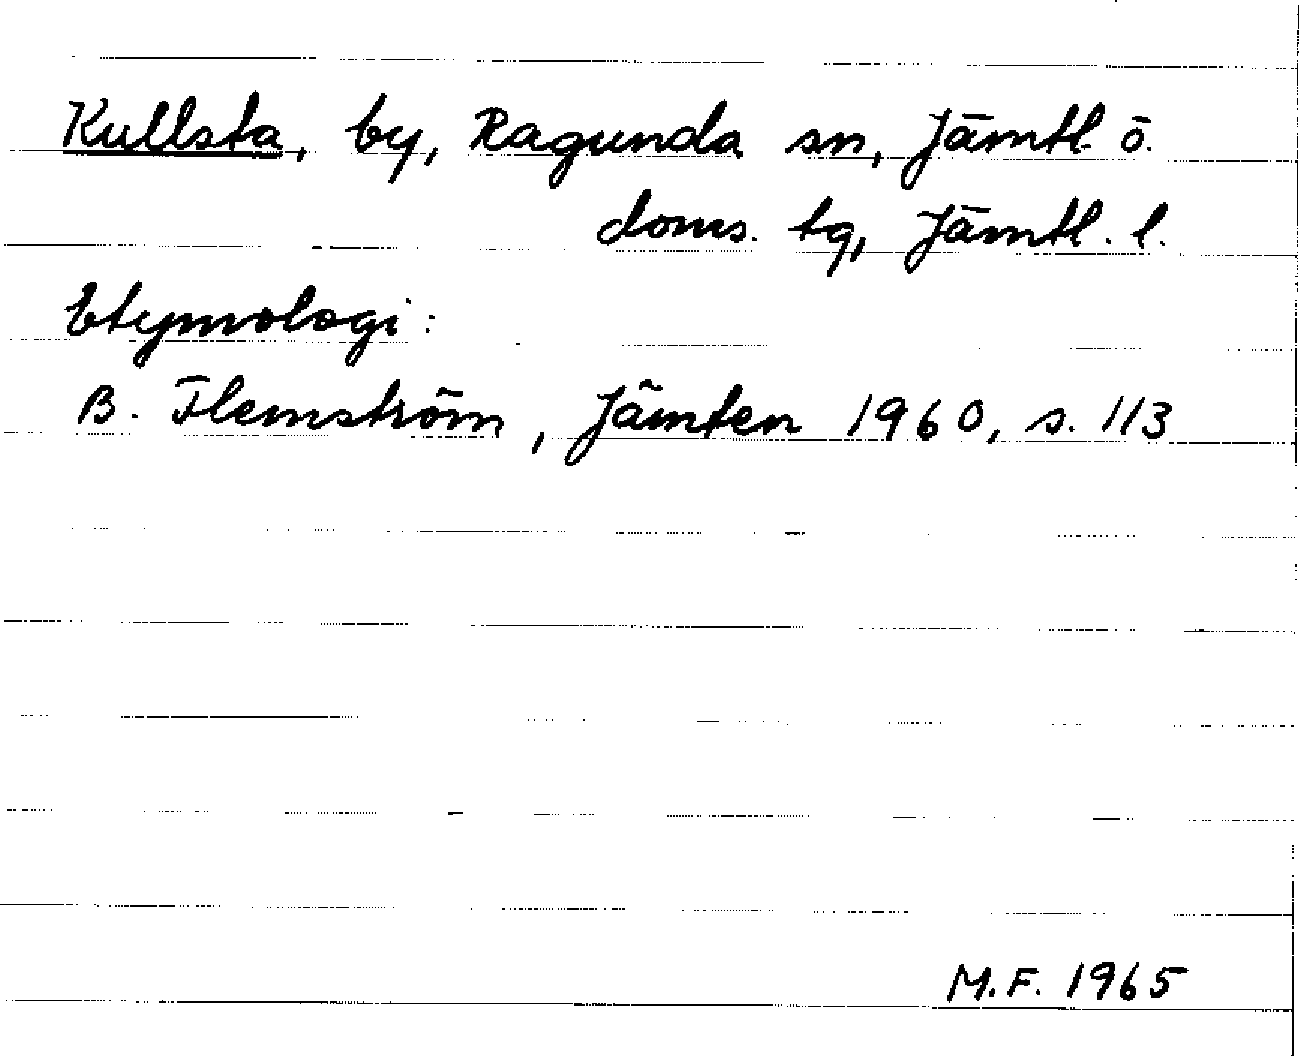 Kullsta, by, Ragunda sn, Jämtl. ö.
doms. tg, Jämtl. l.
Etymologi:
B. Flemström, Jämten 1960, s. 113
M.F. 1965